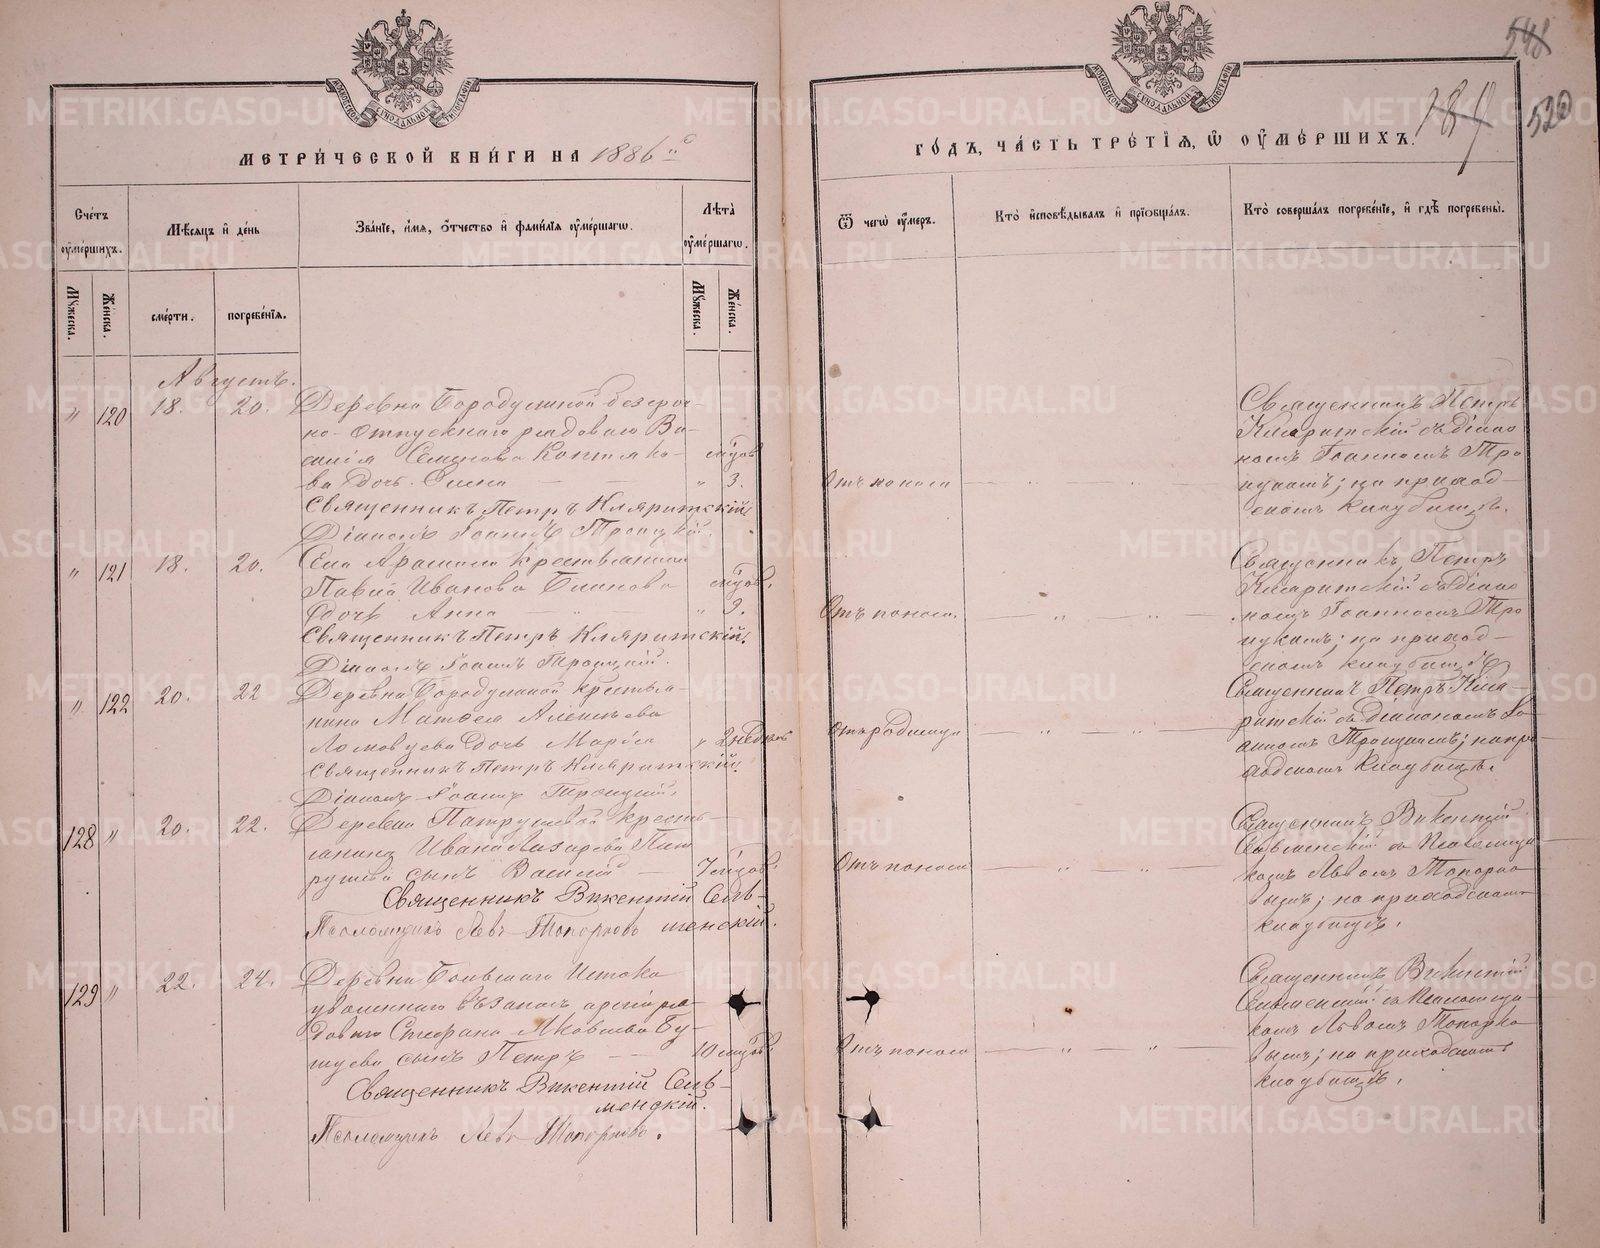 МЕТРИ́ЧЕСКОЙ КНИ́ГИ НА 1886 й
ГО́ДЪ, ЧА́СТЬ ТРЕ́ТІЯ, Ѿ ОУ҆МЕ́РШИХЪ.
548
520
Сче́тъ оу҆ме́ршихъ.
Мѣ́сяцъ и҆ де́нь
Зва́ніе, и҆́мя, ѻ҆́тчество и҆ фами́лія оу҆ме́ршагѡ.
Лѣ́та оу҆ме́ршагѡ.
Ѿ чегѡ̀ оу҆́меръ.
Кто̀ и҆сповѣ́дывалъ и҆ прїѡбща́лъ.
Кто̀ соверша́лъ погребе́ніе, и҆ гдѣ̀ погребены̀.
Му́жеска.
Же́нска.
сме́рти.
погребе́нія.
Му́жеска.
Же́нска.
Августъ.
" 120 18. 20.
Деревни Бородулиной безсроч-
но-отпускнаго рядоваго Ва-
силія Семенова Коптяко-
ва дочь Елена — — " 3.
Священникъ Петръ Кляритскій
Діаконъ Іоаннъ Троицкій.
Отъ поноса — " — " —
Священникъ Петръ
Кляритскій съ діако
номъ Іоанномъ Тро
ицкимъ; на приход-
скомъ кладбищѣ.
" 121 18. 20.
Села Арамили крестьянина
Павла Иванова Блинова
дочь Анна — " — " 9.
Священникъ Петръ Кляритскій.
Діаконъ Іоаннъ Троицкій.
Отъ поноса. — " — " —
Священникъ Петръ
Кляритскій съ діако
номъ Іоанномъ Тро
ицкимъ; на приход-
скомъ кладбищѣ
" 122 20. 22
Деревни Бородулиной крестья-
нина Матѳея Алексѣева
дочь Марія " 2 недѣль
Священникъ Петръ Кляритскій.
Діаконъ Іоаннъ Троицкій.
Отъ родимца — " — " —
Священникъ Петръ Кля-
ритскій съ діакономъ Іо-
анномъ Троицкимъ; на при-
ходскомъ кладбищѣ.
128 " 20. 22.
Деревни Патрушевой кресть-
янина Ивана Лазарева Пат
рушева сынъ Василій — 7 мѣсяц.
Священникъ Викентій Сель-
менскій.
Псаломщикъ Левъ Топорковъ
Отъ поноса — " — " —
Священникъ Викентій
Сельменскій съ псаломщи
комъ Львомъ Топорко
вымъ; на приходскомъ
кладбищѣ.
129 " 22. 24.
Деревни Большаго Истока
уволеннаго въ запасъ арміи ря-
доваго Стефана Яковлева Бу-
сынъ Петръ — — 10 мѣсяц.
Священникъ Викентій Сель-
менскій.
Псаломщикъ Левъ Топорковъ.
Отъ поноса — " — " —
Священникъ Викентій
Сельменскій съ псаломщи-
комъ Львомъ Топорко
вымъ; на приходскомъ
кладбищѣ.